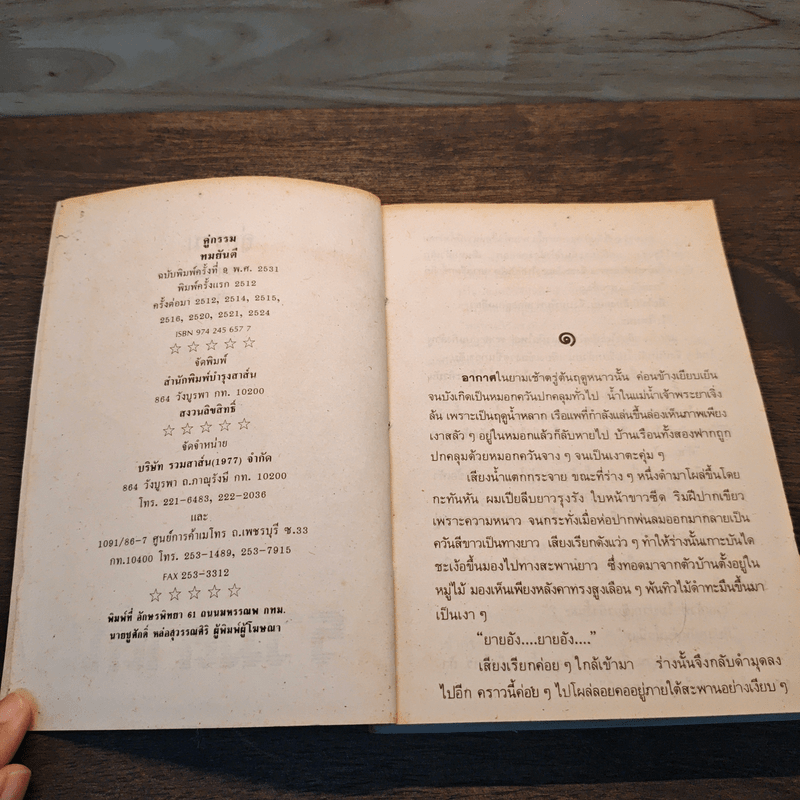 คู่กรรม
ทมยันตี
ฉบับพิมพ์ครั้งที่ ๑ พ.ศ. 2531
พิมพ์ครั้งแรก 2512
ครั้งต่อมา 2512, 2514, 2515,
2516, 2520, 2521, 2524
ISBN 974 245 657 7
☆ ☆ ☆ ☆ ☆
จัดพิมพ์
สำนักพิมพ์บำรุงสาส์น
864 วังบูรพา กท. 10200
สงวนลิขสิทธิ์
☆ ☆ ☆ ☆ ☆
จัดจำหน่าย
บริษัท รวมสาส์น(1977) จำกัด
864 วังบูรพา ถ.ภาณุรังษี กท. 10200
โทร. 221-6483, 222-2036
และ
1091/86-7 ศูนย์การค้าเมโทร ถ.เพชรบุรี ซ.33
กท.10400 โทร. 253-1489, 253-7915
FAX 253-3312
☆ ☆ ☆ ☆ ☆
พิมพ์ที่ อักษรพิทยา 61 ถนนมหรรณพ กทม.
นายชูศักดิ์ หล่อสุวรรณศิริ ผู้พิมพ์ผู้โฆษณา
๑
อากาศในยามเช้าตรู่ต้นฤดูหนาวนั้น ค่อนข้างเยียบเย็น
จนบังเกิดเป็นหมอกควันปกคลุมทั่วไป น้ำในแม่น้ำเจ้าพระยาเจิ่ง
ล้น เพราะเป็นฤดูน้ำหลาก เรือแพที่กำลังแล่นขึ้นล่องเห็นภาพเพียง
เงาสลัว ๆ อยู่ในหมอกแล้วก็ลับหายไป บ้านเรือนทั้งสองฟากถูก
ปกคลุมด้วยหมอกควันจาง ๆ จนเป็นเงาตะคุ่ม ๆ
เสียงน้ำแตกกระจาย ขณะที่ร่าง ๆ หนึ่งดำมาโผล่ขึ้นโดย
กะทันหัน ผมเปียลีบยาวรุงรัง ใบหน้าขาวซีด ริมฝีปากเขียว
เพราะความหนาว จนกระทั่งเมื่อห่อปากพ่นลมออกมากลายเป็น
ควันสีขาวเป็นทางยาว เสียงเรียกดังแว่ว ๆ ทำให้ร่างนั้นเกาะบันได
ชะเง้อขึ้นมองไปทางสะพานยาว ซึ่งทอดมาจากตัวบ้านตั้งอยู่ใน
หมู่ไม้ มองเห็นเพียงหลังคาทรงสูงเลือน ๆ พ้นทิวไม้ดำทะมึนขึ้นมา
เป็นเงา ๆ
“ยายอัง....ยายอัง....”
เสียงเรียกค่อย ๆ ใกล้เข้ามา ร่างนั้นจึงกลับดำมุดลง
ไปอีก คราวนี้ค่อย ๆ ไปโผล่ลอยคออยู่ภายใต้สะพานอย่างเงียบ ๆ